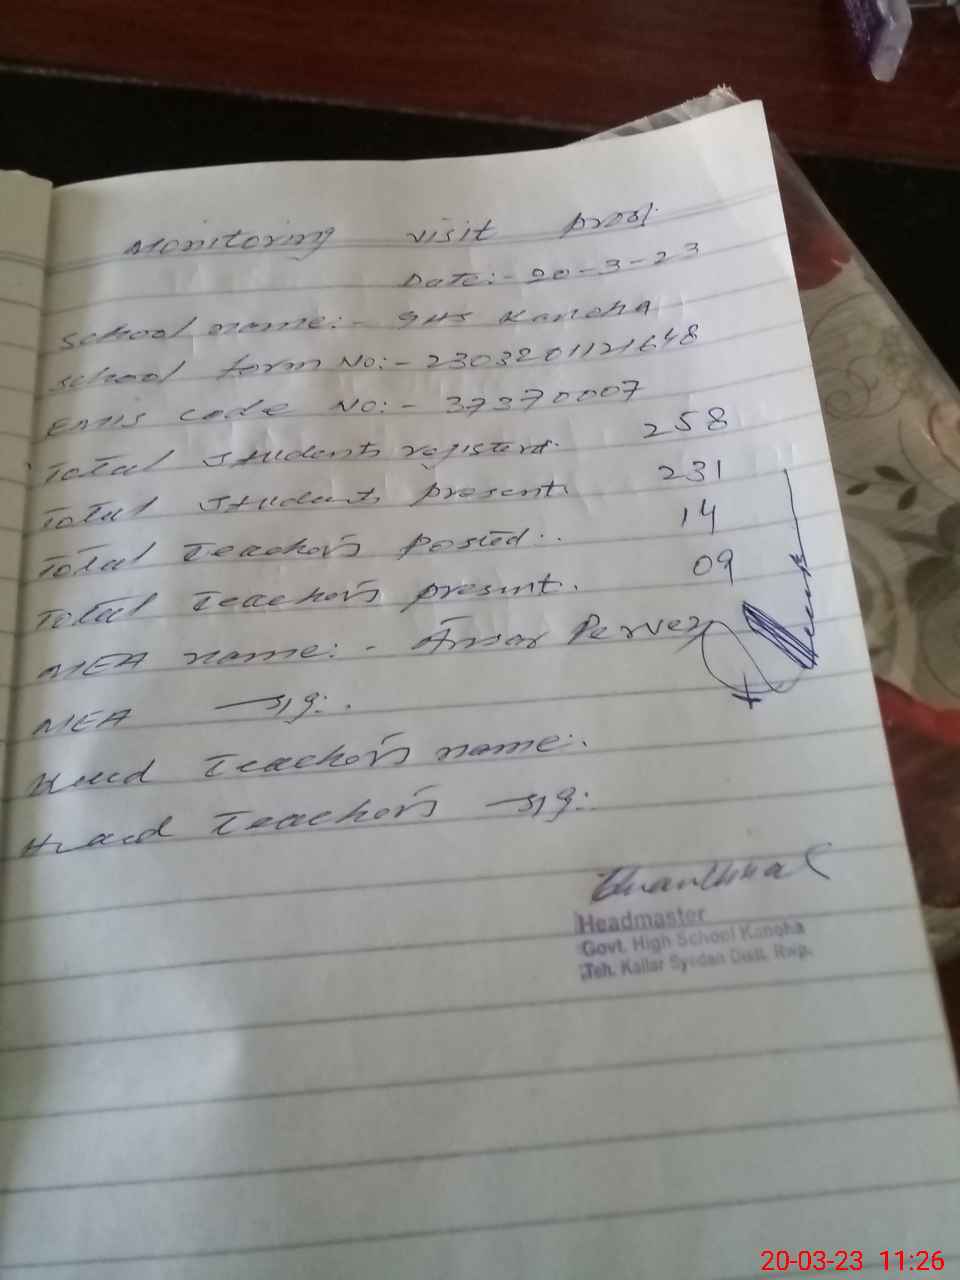 Monitoring visit proof
Date:- 20-3-23
School name:- GHS Kanoha
School form No:- 2303201121648
EMIS code No:- 37370007
Total Students registerd. 258
Total Students present. 231
Total Teachers Posted.. 14
Total Teachers present. 09
MEA name:- Ansar Pervez
MEA sig:.
Head Teachers name:.
Head Teachers sig:
Headmaster
Govt. High School Kanoha
Teh. Kallar Syedan Distt. Rwp.
20-03-23 11:26